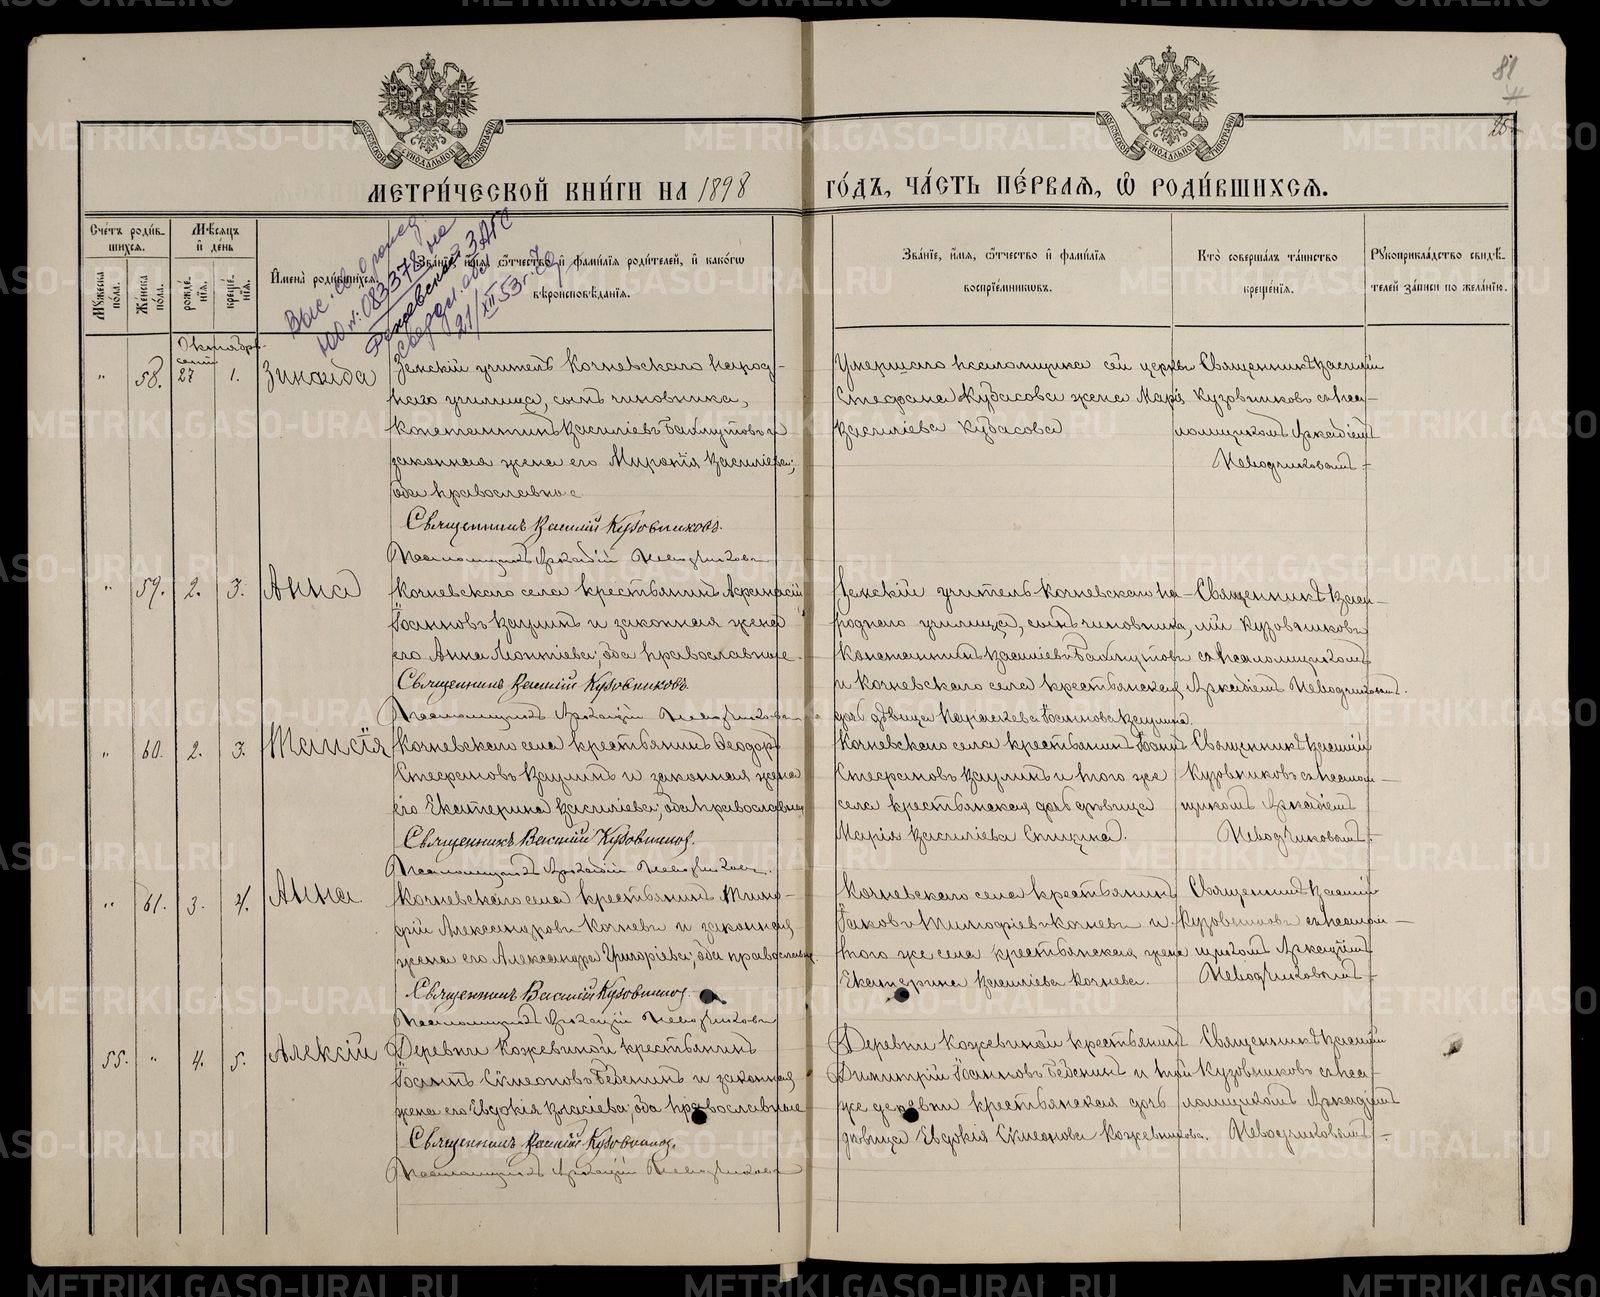 81
25
МЕТРИ́ЧЕСКОЙ КНИ́ГИ НА 1898 ГО́ДЪ, ЧА́СТЬ ПЕ́РВАѦ, Ѡ҆ РОДИ́ВШИХСѦ.
Сче́тъ роди́вшихсѧ.
Мѣ́сѧцъ и҆ де́нь
Мꙋ́жеска по́ла.
Же́нска по́ла.
рожде́нїѧ.
креще́нїѧ.
И҆мена̀ роди́вшихсѧ.
Зва́нїе, и҆́мѧ, ѻ҆́тчество и҆ фами́лїѧ роди́телей, и҆ како́гѡ вѣроисповѣ́данїѧ.
Зва́нїе, и҆́мѧ, ѻ҆́тчество и҆ фами́лїѧ воспрїе́мниковъ.
Кто̀ соверша́лъ та́инство креще́нїѧ.
Рꙋкоприкла́дство свидѣ́телей за́писи по жела́нїю.
№: 083378 на
ЗАГС
21/XII 53 г.
58.
27
1.
Зинаида
Земскій учитель Кочневскаго народ-
наго училища, сынъ чиновника,
Константинъ Василіевъ Бахмутовъ и
законная жена его Миропія Василіева;
оба православные
Священникъ Василій Кузовниковъ.
Псаломщикъ Аркадій Неводчиковъ
Умершаго псаломщика сей церкви
Стефана Кудасова жена Марія
Василіева Кудасова
Священникъ Василій
Кузовниковъ съ пса-
ломщикомъ Аркадіемъ
Неводчиковымъ
59.
2.
3.
Анна
Кочневскаго села крестьянинъ Афанасій
Іоанновъ Ваулинъ и законная жена
его Анна Леонтіева; оба православные.
Священникъ Василій Кузовниковъ.
Псаломщикъ Аркадій Неводчиковъ
Земскій учитель Кочневскаго на-
роднаго училища, сынъ чиновника,
Константинъ Василіевъ Бахмутовъ
и Кочневскаго села крестьянская
дочь дѣвица Іоаннова Ваулина.
Священникъ Васи-
лій Кузовниковъ
съ псаломщикомъ
Аркадіемъ Неводчиковымъ.
60.
2.
3.
Таисія
Кочневскаго села крестьянинъ Ѳеодоръ
Стефановъ Ваулинъ и законная жена
его Екатерина Василіева; оба православные
Священникъ Василій Кузовниковъ.
Псаломщикъ Аркадій Неводчиковъ.
Кочневскаго села крестьянинъ Іоаннъ
Стефановъ Ваулинъ и того же
села крестьянская дочь дѣвица
Марія Василіева Спицина.
Священникъ Василій
Кузовниковъ съ псалом-
щикомъ Аркадіемъ
Неводчиковымъ.
61.
3.
4.
Анна
Кочневскаго села крестьянинъ Тимо-
фій Александровъ Кочневъ и законная
жена его Александра Григоріева; оба православные.
Священникъ Василій Кузовниковъ.
Псаломщикъ Аркадій Неводчиковъ
Кочневскаго села крестьянинъ
Іаковъ Тимофіевъ Кочневъ и
того же села крестьянская жена
Екатерина Василіева Кочнева.
Священникъ Василій
Кузовниковъ съ псалом-
щикомъ Аркадіемъ
Неводчиковымъ
55.
4.
5.
Алексій
Деревни Кожевиной крестьянинъ
Іоаннъ Симеоновъ Бебенинъ и законная
жена его Евдокія Власіева; оба православные
Священникъ Василій Кузовниковъ.
Псаломщикъ Аркадій Неводчиковъ
Деревни Кожевиной крестьянинъ
Димитрій Іоанновъ Бебенинъ и той
же деревни крестьянская дочь
дѣвица Евдокія Симеонова Кожевникова.
Священникъ Василій
Кузовниковъ съ пса-
ломщикомъ Аркадіемъ
Неводчиковымъ.
METRIKI.GASO-URAL.RU